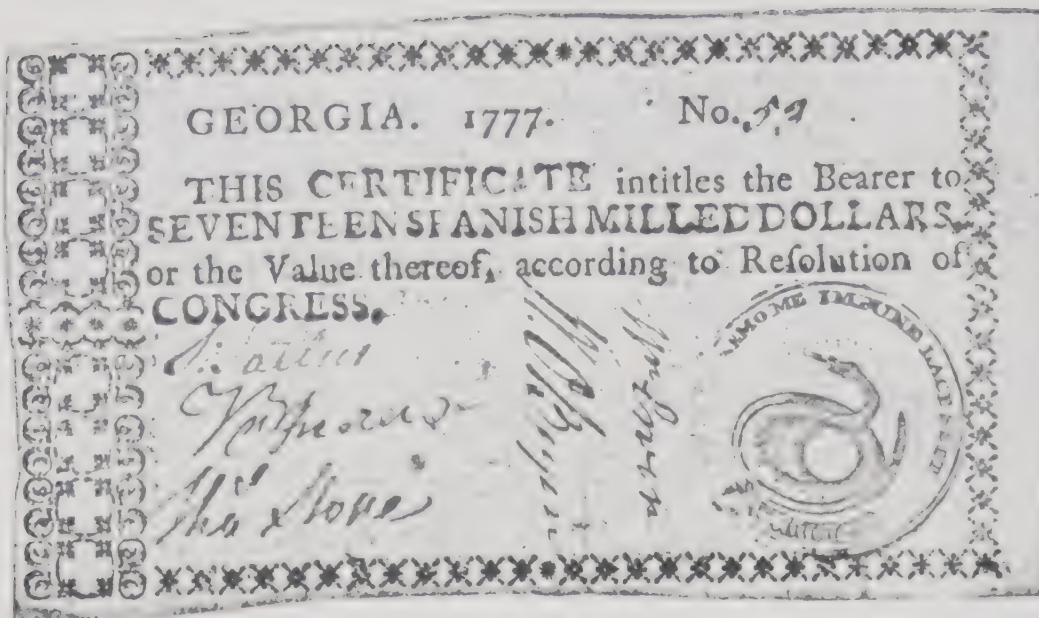 GEORGIA. 1777. No.
THIS CERTIFICATE intitles the Bearer to
SEVENTEEN SPANISH MILLED DOLLARS,
or the Value thereof, according to Reſolution of
CONGRESS.
NEMO ME IMPUNE LACESSET
Tho Stone